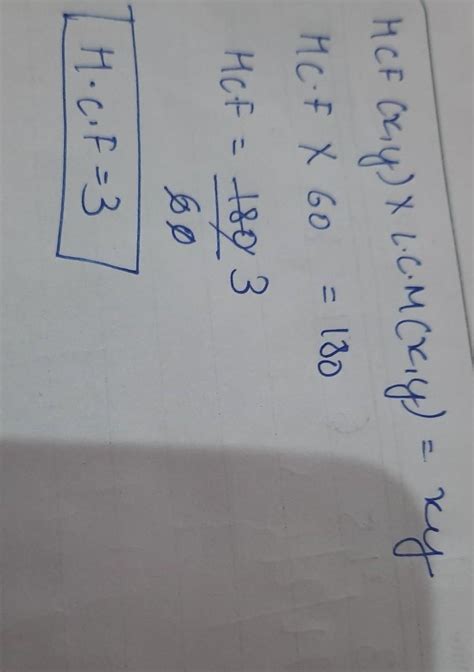 HCF(x,y) × L.C.M(x,y) = xy
HC.F × 60 = 180
HCF = 180 3
60
H.C.F = 3